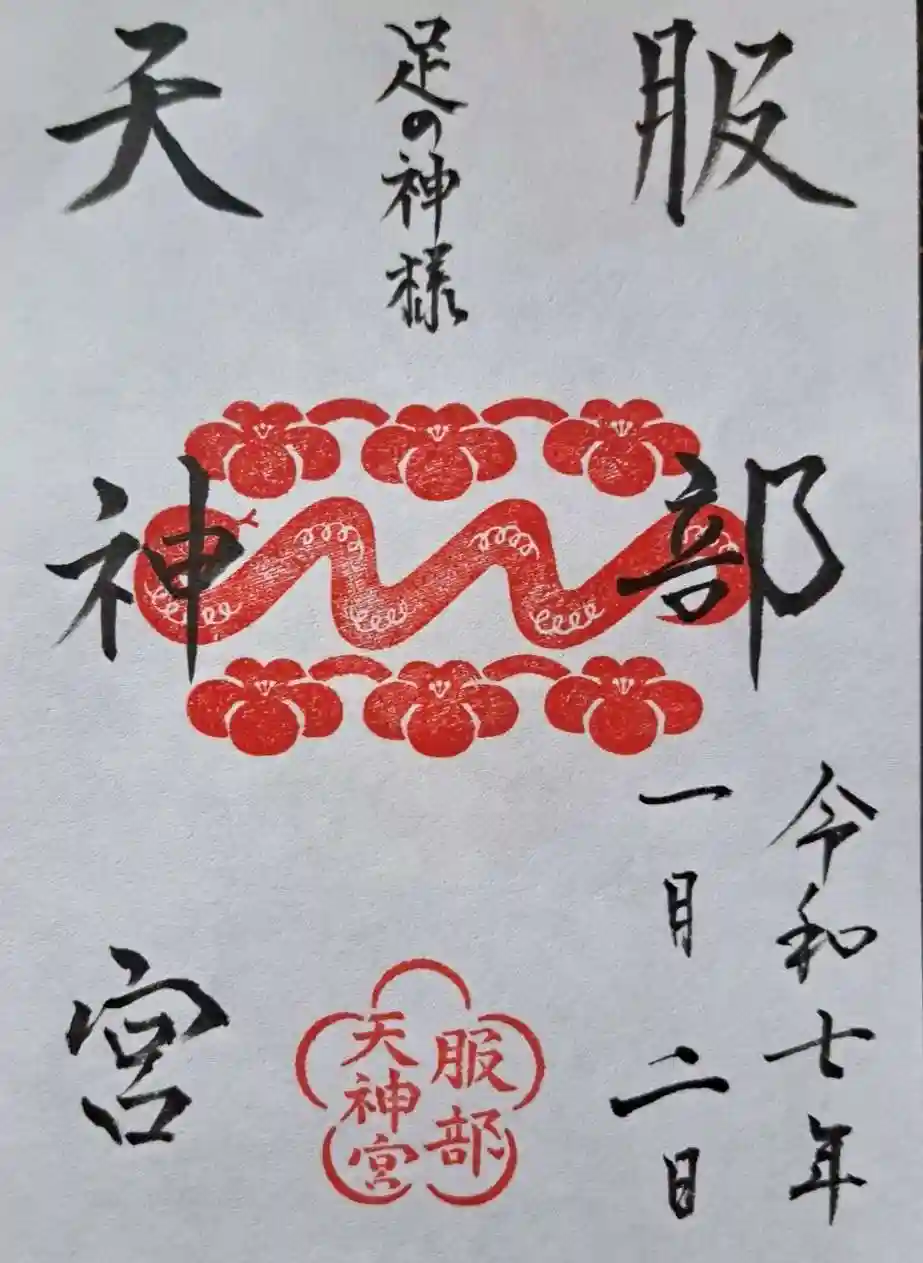 服部
令和七年
一月二日
足の神様
天神宮
服部
天神宮